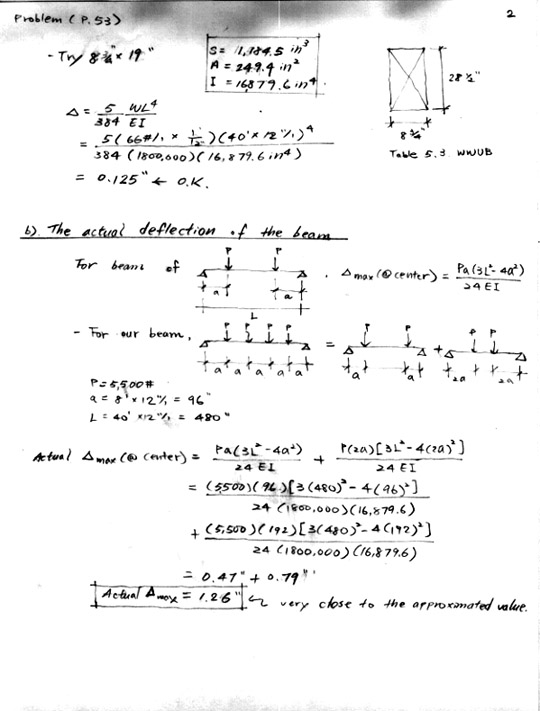 Problem (P. 53)
2
- Try 8 3/4" x 19"
S = 1,184.5 in³
A = 249.4 in²
I = 16879.6 in⁴
28 1/2"
8 3/4"
Table 5.3 WWUB
Δ = 5/384 WL⁴/EI
= 5(66#/, × 1/12)(40' × 12"/,)⁴ / 384 (1800,000)(16,879.6 in⁴)
= 0.125" ← O.K.
b). The actual deflection of the beam
For beam of
P P
a a
L
. Δmax (@ center) = Pa(3L² - 4a²) / 24 EI
- For our beam,
P P P P
a a a a a
=
P P
a a
+
P P
2a 2a
P = 5,500#
a = 8' × 12"/, = 96"
L = 40' × 12"/, = 480"
Actual Δmax (@ center) = Pa(3L² - 4a²) / 24 EI + P(2a)[3L² - 4(2a)²] / 24 EI
= (5,500)(96)[3(480)² - 4(96)²] / 24 (1800,000)(16,879.6)
+ (5,500)(192)[3(480)² - 4(192)²] / 24 (1800,000)(16,879.6)
= 0.47" + 0.79"
Actual Δmax = 1.26" ← very close to the approximated value.